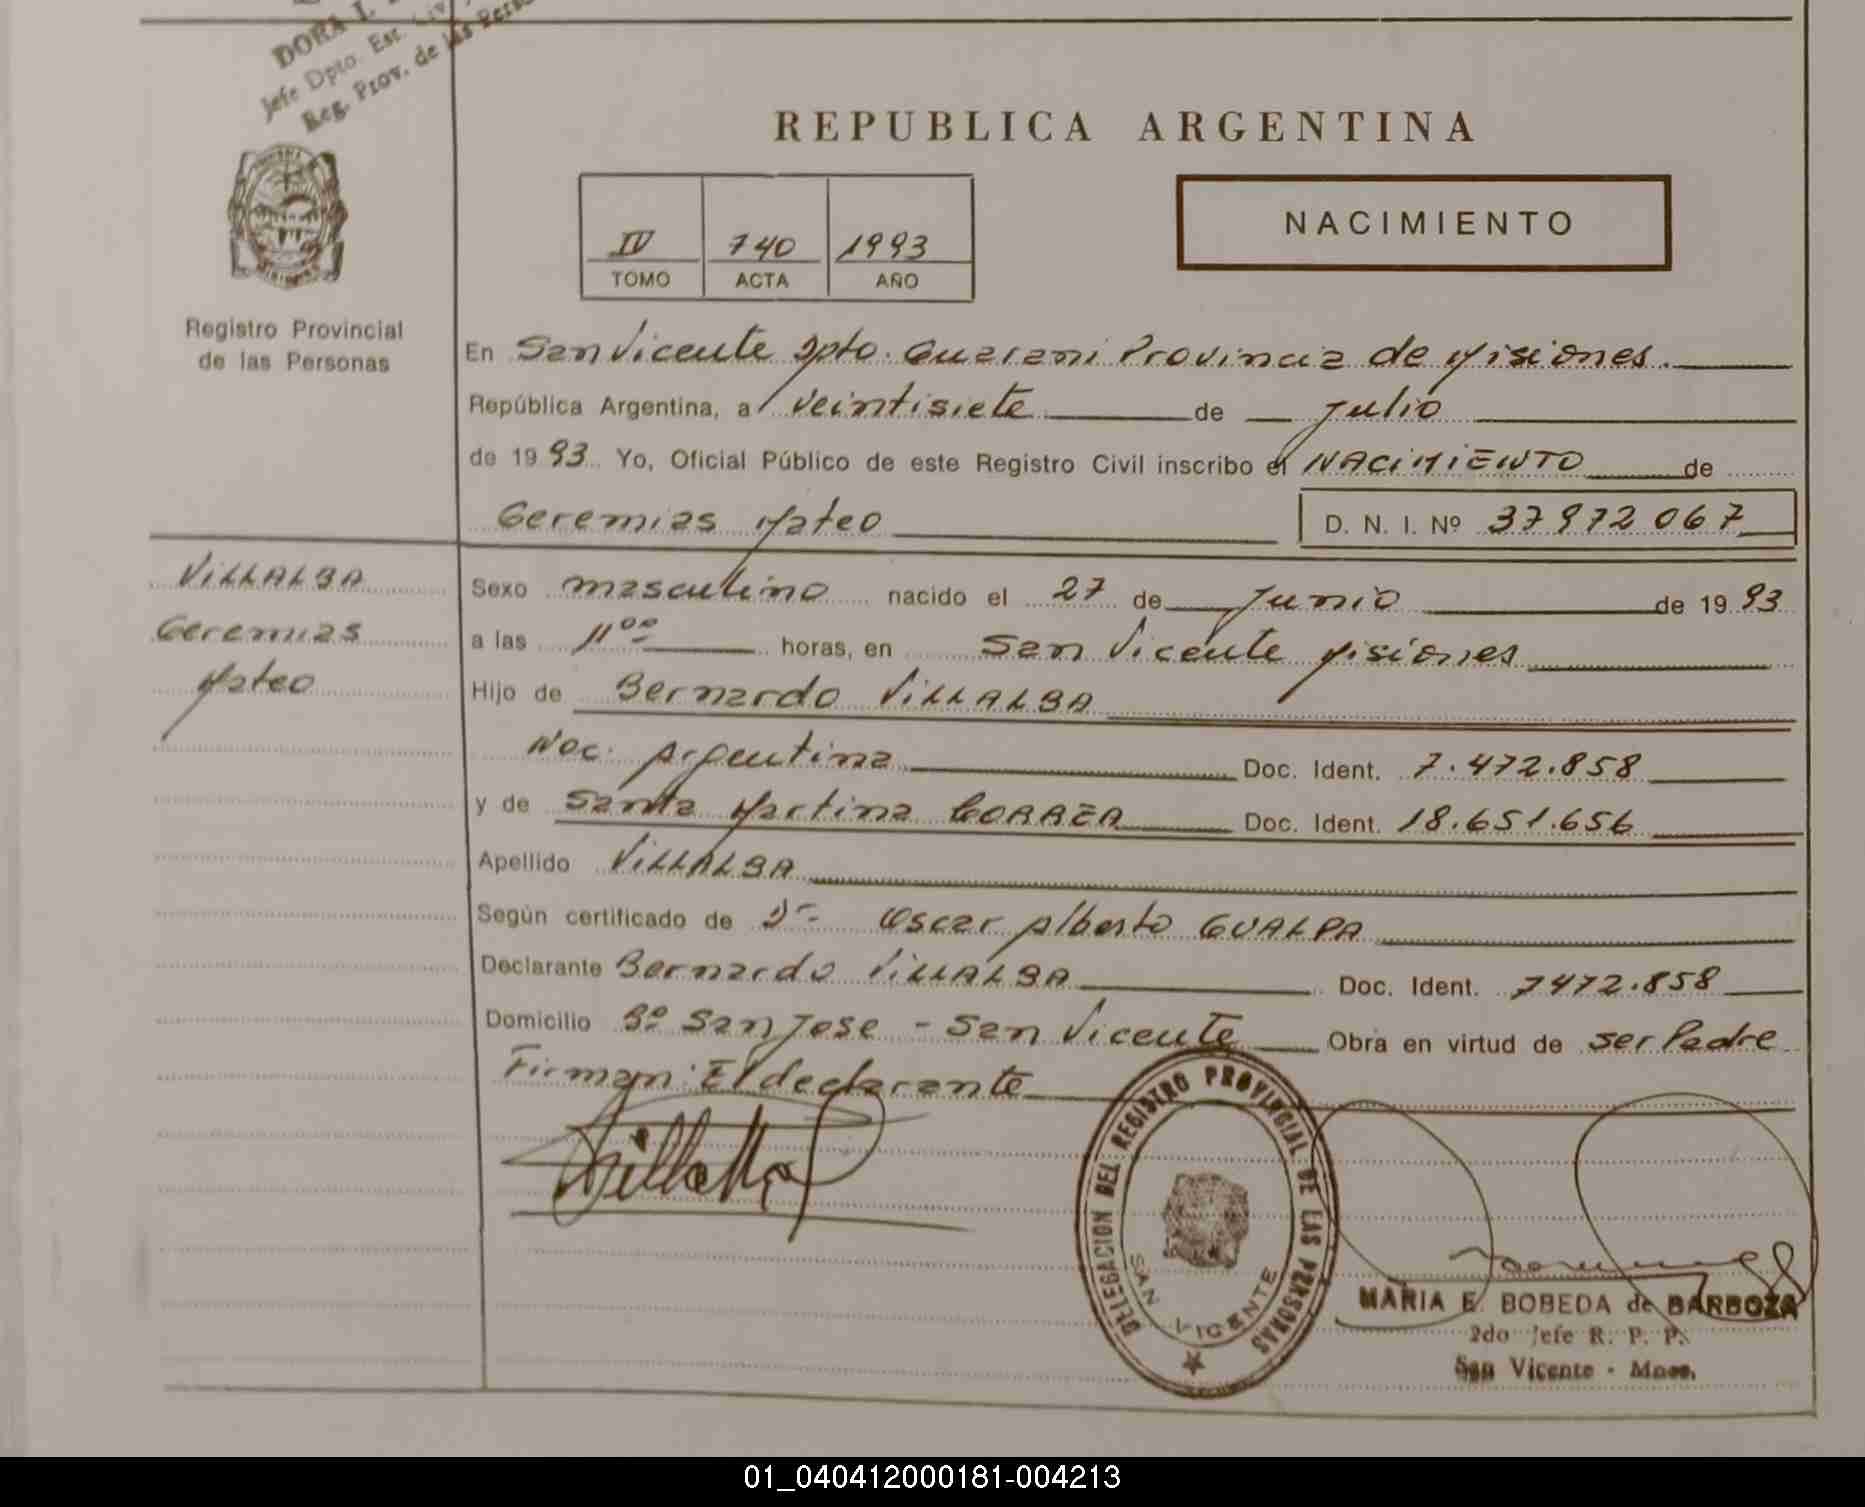 DORA I.
Jefe Dpto. Est. Civ.
Reg. Prov. de las Pers
REPUBLICA ARGENTINA
NACIMIENTO
IV 740 1993
TOMO ACTA AÑO
Registro Provincial
de las Personas
En San Vicente Dpto. Guarani Provincia de Misiones.
República Argentina, a veintisiete de Julio
de 1993 Yo, Oficial Público de este Registro Civil inscribo el NACIMIENTO de
Geremias Mateo D. N. I. Nº 37972067
VILLALBA
Geremias
Mateo
Sexo masculino nacido el 27 de Junio de 1993
a las 11ºº horas, en San Vicente Misiones
Hijo de Bernardo VILLALBA
Nac. Argentina Doc. Ident. 7.472.858
y de Santa Martina CORREA Doc. Ident. 18.651.656
Apellido VILLALBA
Según certificado de Dr Oscar Alberto GUALPA
Declarante Bernardo VILLALBA Doc. Ident. 7472.858
Domicilio Bº San Jose - San Vicente Obra en virtud de ser Padre
Firman: El declarante
Villalba
DELEGACION DEL REGISTRO PROVINCIAL DE LAS PERSONAS
SAN VICENTE
MARIA E. BOBEDA de BARBOZA
2do Jefe R. P. P.
San Vicente - Mnes.
01_040412000181-004213